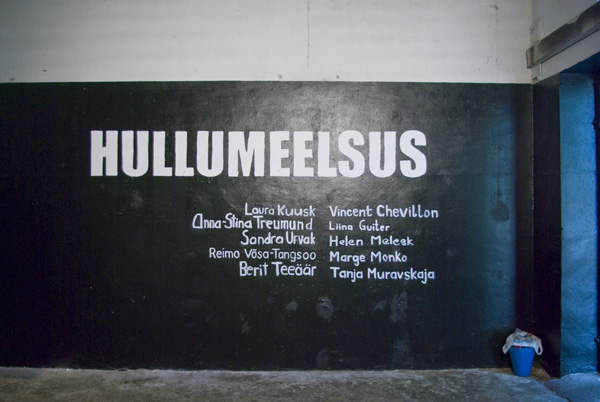 HULLUMEELSUS
Laura Kuusk
Anna-Stina Treumund
Sandra Urvak
Reimo Võsa-Tangsoo
Berit Teeäär
Vincent Chevillon
Liina Guiter
Helen Melesk
Marge Monko
Tanja Muravskaja